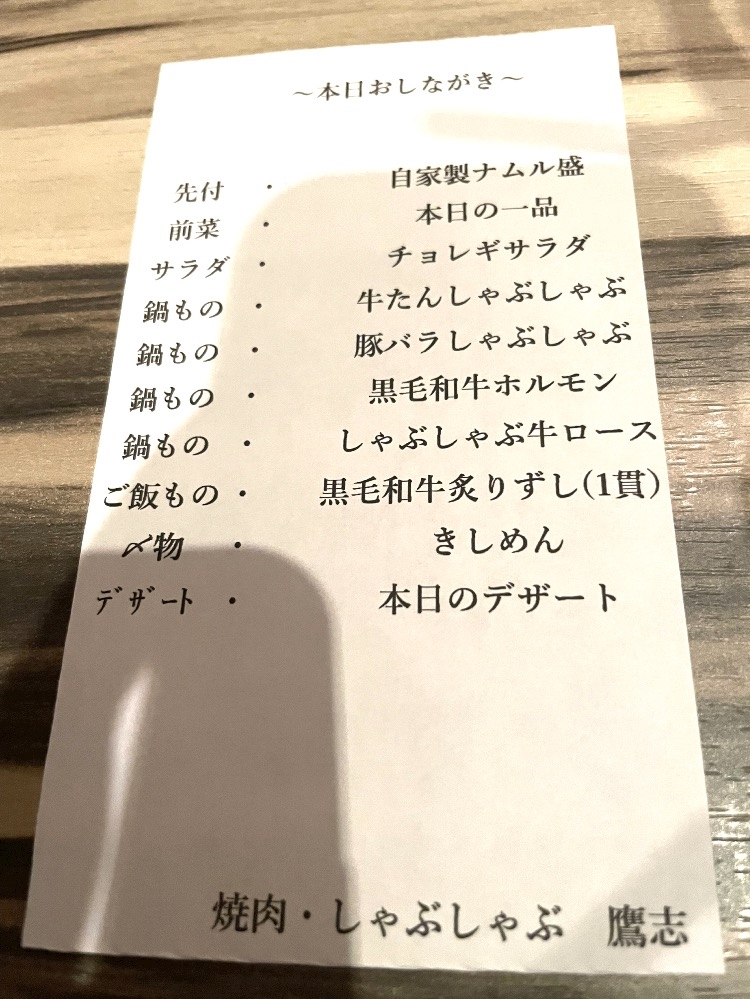 ～本日おしながき～
先付 ・ 自家製ナムル盛
前菜 ・ 本日の一品
サラダ ・ チョレギサラダ
鍋もの ・ 牛たんしゃぶしゃぶ
鍋もの ・ 豚バラしゃぶしゃぶ
鍋もの ・ 黒毛和牛ホルモン
鍋もの ・ しゃぶしゃぶ牛ロース
ご飯もの ・ 黒毛和牛炙りずし(1貫)
〆物 ・ きしめん
ﾃﾞｻﾞｰﾄ ・ 本日のデザート
焼肉・しゃぶしゃぶ 鷹志